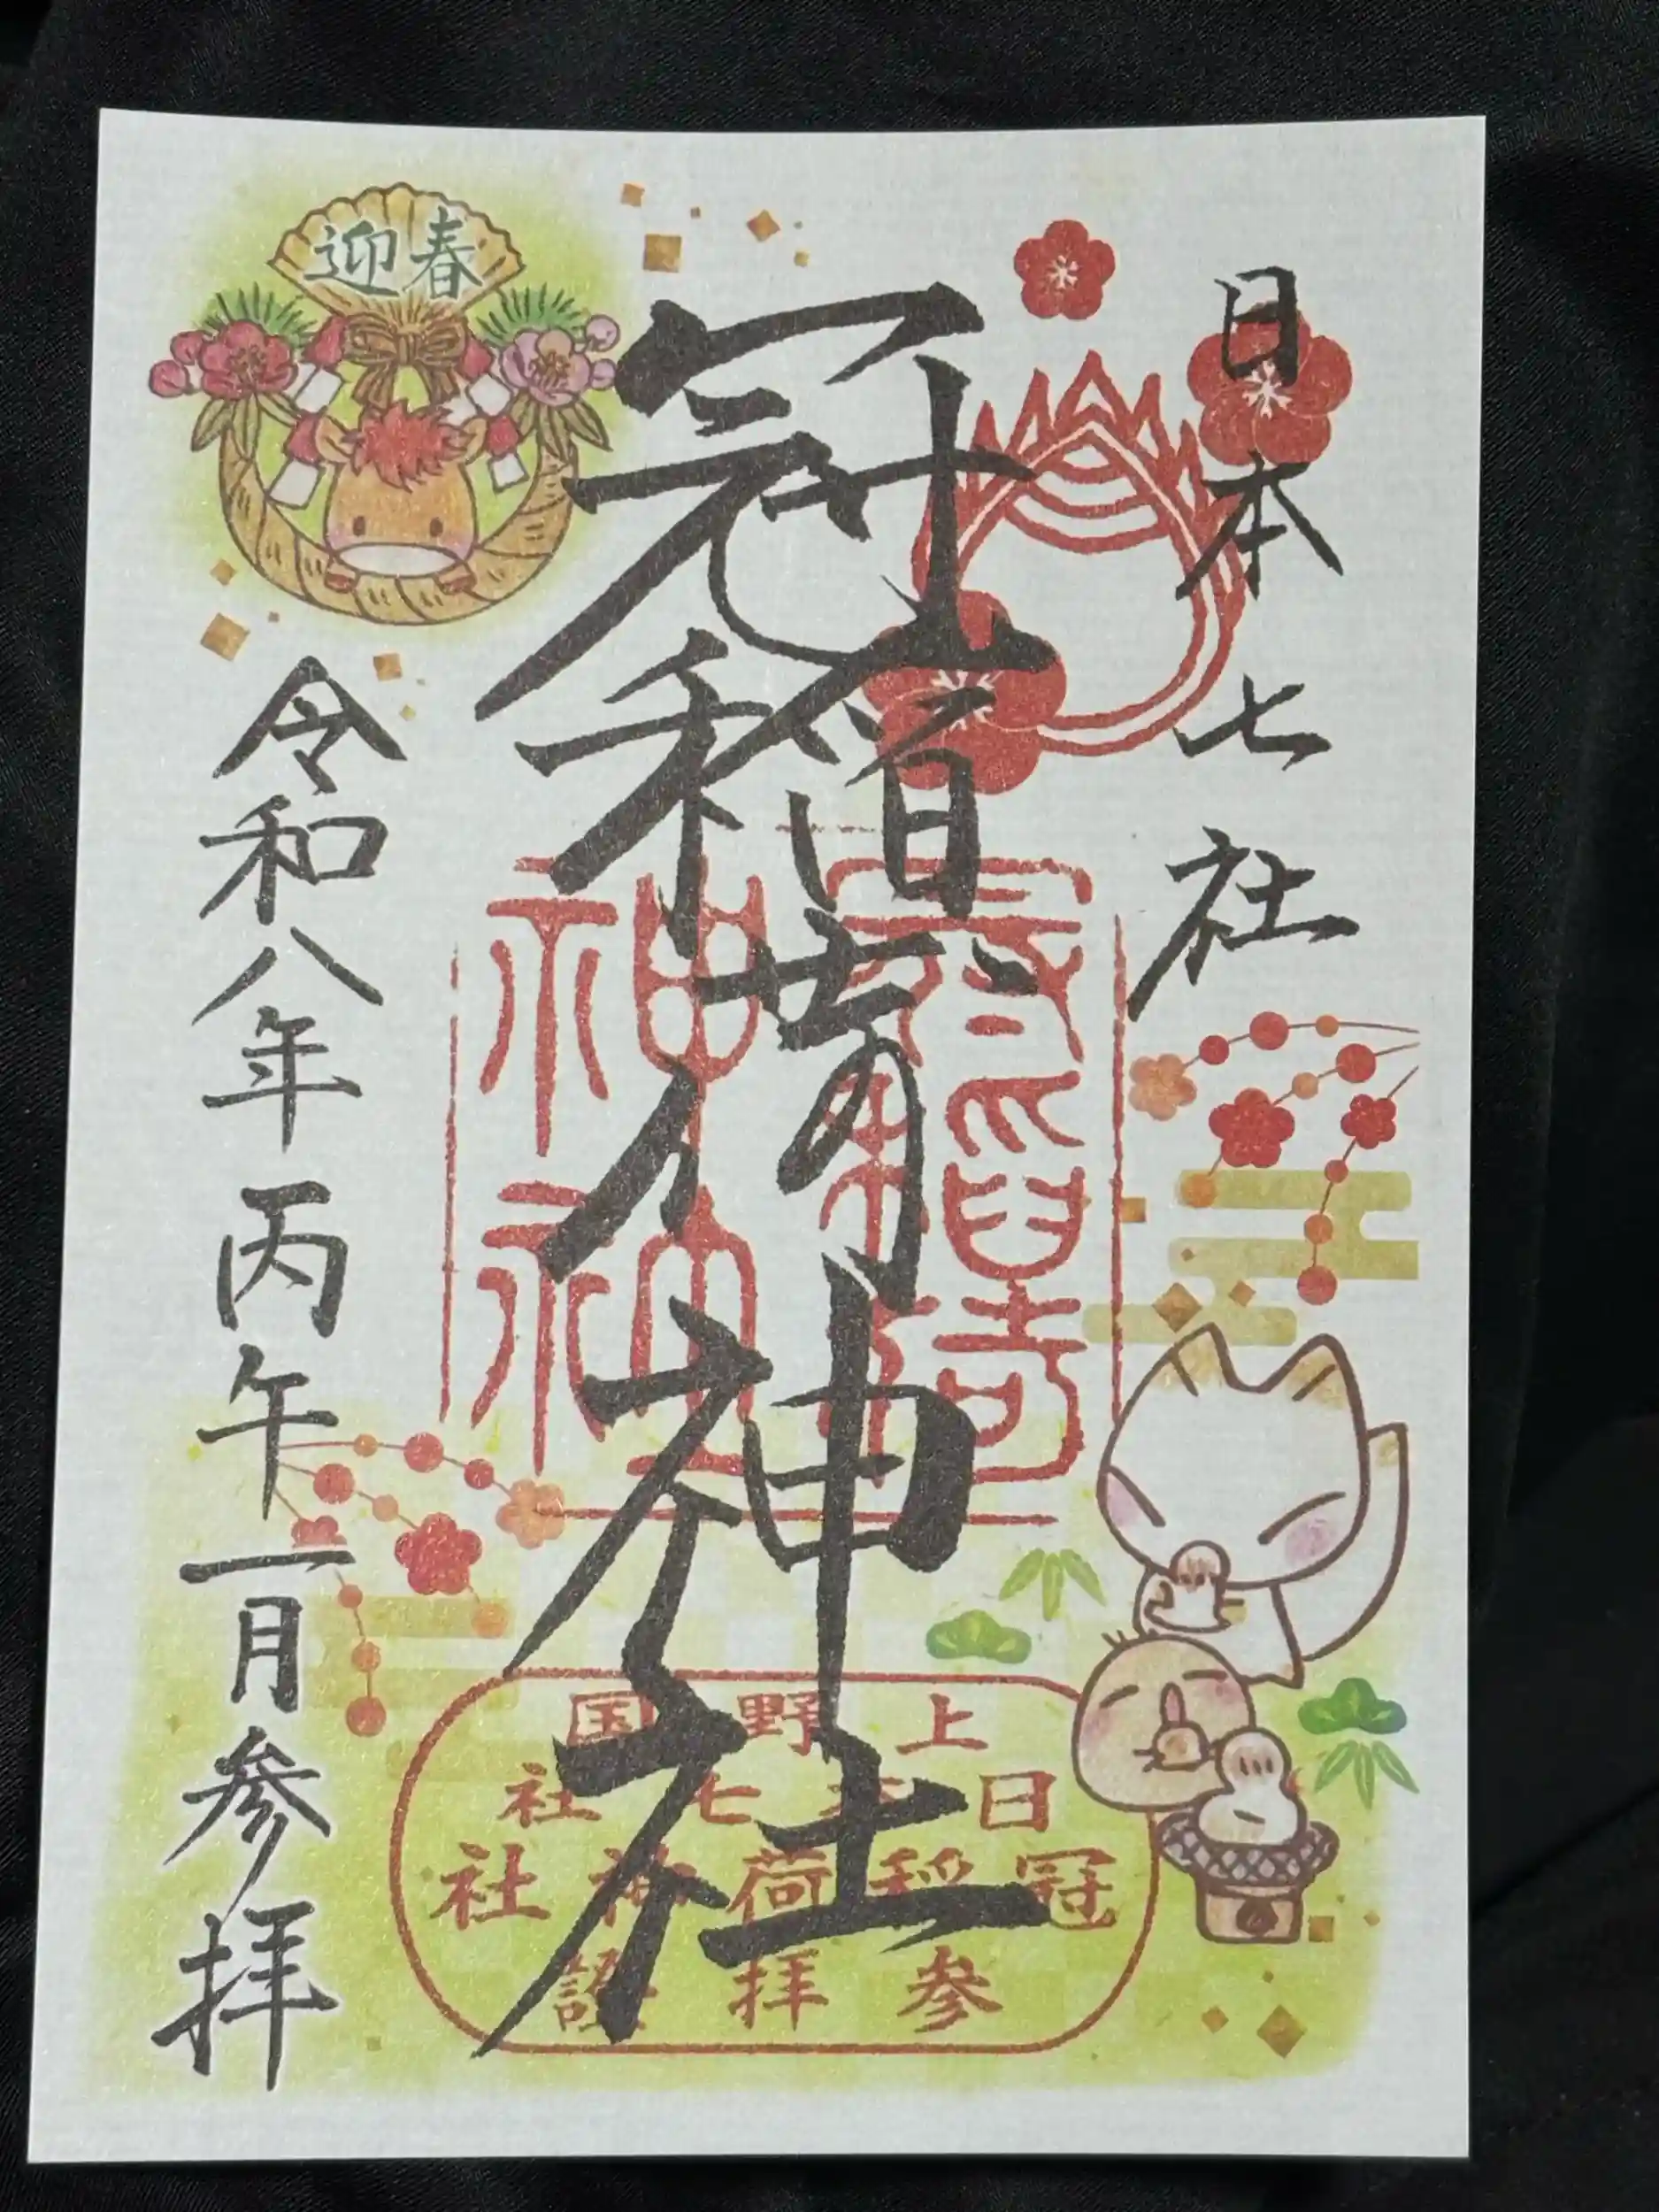 日本七社
冠稲荷神社
迎春
令和八年丙午一月参拝
上野国
日本七社
冠稲荷神社
参拝證